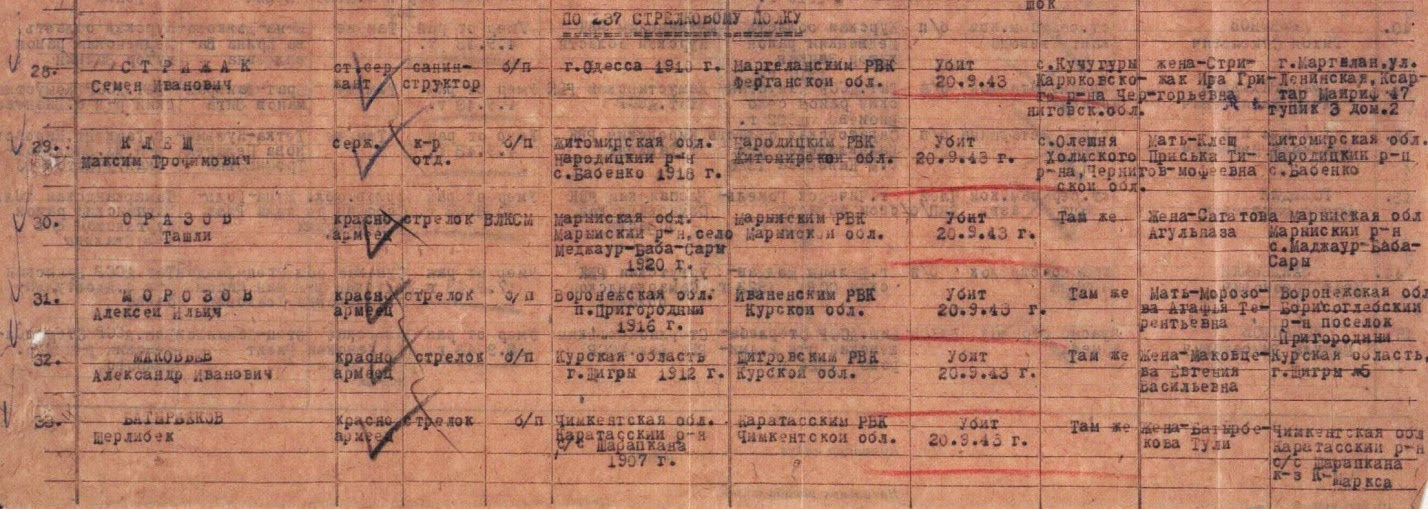 шок
ПО 237 СТРЕЛКОВОМУ ПОЛКУ
28. СТРИЖАК
Семен Иванович
ст.сер
жант
санин-
структор
б/п
г.Одесса 1910 г.
Маргеланским РВК
Ферганской обл.
Убит
20.9.43
с.Кучугуры
Карюковско-
го р-на Чер-
ниговск.обл.
жена-Стри-
жак Ира Гри-
горьевна
г.Маргелан,ул.
Ленинская,Ксар
тар Майриф 47
тупик 3 дом.2
29. КЛЕЩ
Максим Трочимович
серж.
к-р
отд.
б/п
Житомирская обл.
Народицкий р-н
с.Бабенко 1918 г.
Народицким РВК
Житомирской обл.
Убит
20.9.43 г.
с.Олешня
Холмского
р-на,Чернигов-
ской обл.
Мать-Клещ
Приська Ти-
мофеевна
Житомирская обл.
Народицкий р-н
с.Бабенко
30. ОРАЗОВ
Ташли
красно
армеец
стрелок
ВЛКСМ
Марыйская обл.
Марыйский р-н,село
Меджаур-Баба-Сары
1920 г.
Марыйским РВК
Марыйской обл.
Убит
20.9.43 г.
Там же
Жена-Сагатова
Агульназа
Марыйская обл
Марыйский р-н
с.Маджаур-Баба-
Сары
31. МОРОЗОВ
Алексей Ильич
красно
армеец
стрелок
б/п
Воронежская обл.
п.Пригородный
1916 г.
Иваненским РВК
Курской обл.
Убит
20.9.43 г.
Там же
Мать-Морозо-
ва Агафия Те-
рентьевна
Воронежская обл
Борисоглебский
р-н поселок
Пригородный
32. МАКОВЬЕВ
Александр Иванович
красно
армеец
стрелок
б/п
Курская область
г.Щигры 1912 г.
Щигровским РВК
Курской обл.
Убит
20.9.43 г.
Там же
Жена-Маковце-
ва Евгения
Васильевна
Курская область,
г.Щигры
33. БАТЫРБЕКОВ
Шерлибек
красно
армеец
стрелок
б/п
Чимкентская обл.
Каратасский р-н
с/с Шарапкана
1907 г.
Каратасским РВК
Чимкентской обл.
Убит
20.9.43 г.
Там же
жена-Батырбе-
кова Тули
Чимкентская обл
Каратасский р-н
с/с Шарапкана
к-з К-Маркса